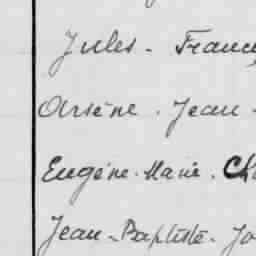 Jules - Franc
Arsène . Jean -
Eugène - Marie . Ch
Jean - Baptiste - Jo